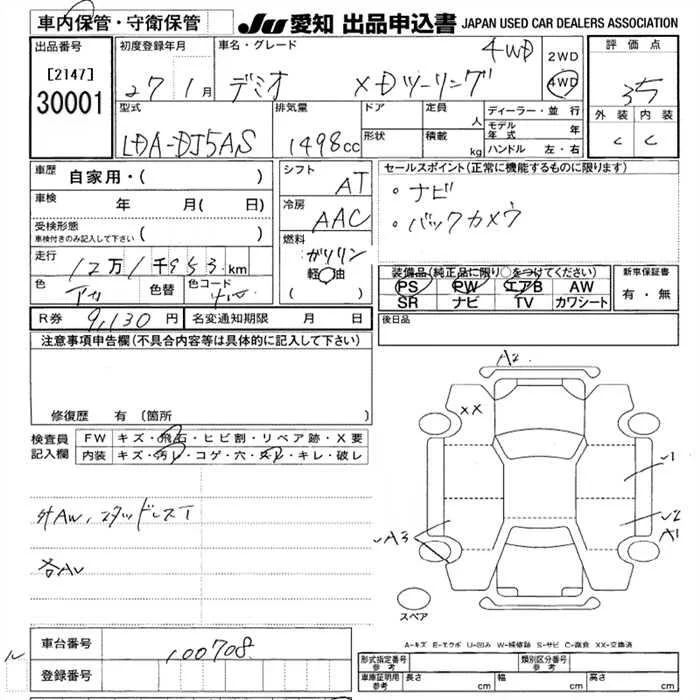 車内保管・守衛保管
JU 愛知 出品申込書 JAPAN USED CAR DEALERS ASSOCIATION
出品番号
[2147]
30001
初度登録年月
27 1月
車名・グレード
デミオ XDツーリング 4WD
2WD
4WD
評価点
35
外装 内装
C C
型式
LDA-DJ5AS
排気量
1498cc
ドア
形状
定員 人
積載 kg
ディーラー・並行
モデル年式 年
ハンドル 左・右
車歴
自家用・( )
車検 年 月(日)
受検形態
車検付きのみ記入して下さい ( )
走行
12万1千953km
色
色替
色コード
シフト
AT
冷房
AAC
燃料
ガソリン
軽油
( )
セールスポイント(正常に機能するものに限ります)
・ナビ
・バックカメラ
装備品(純正品に限り○をつけてください)
PS PW エアB AW
SR ナビ TV カワシート
新車保証書
有・無
R券 9,130円 名変通知期限 月 日
後日品
注意事項申告欄(不具合内容等は具体的に記入して下さい)
修復歴 有 (箇所 )
検査員
記入欄
FW キズ・飛石・ヒビ割・リペア跡・X要
内装 キズ・汚レ・コゲ・穴・スレ・キレ・破レ
外AW,スタッドレスT
各AU
A2
XX
A3
A1
スペア
A-キズ E-エクボ U-凹み W-補修跡 S-サビ C-腐食 XX-交換済
車台番号
100708
登録番号
形式指定番号
参考
類別区分番号
参考
車庫証明用
参考
長さ cm 幅 cm 高さ cm